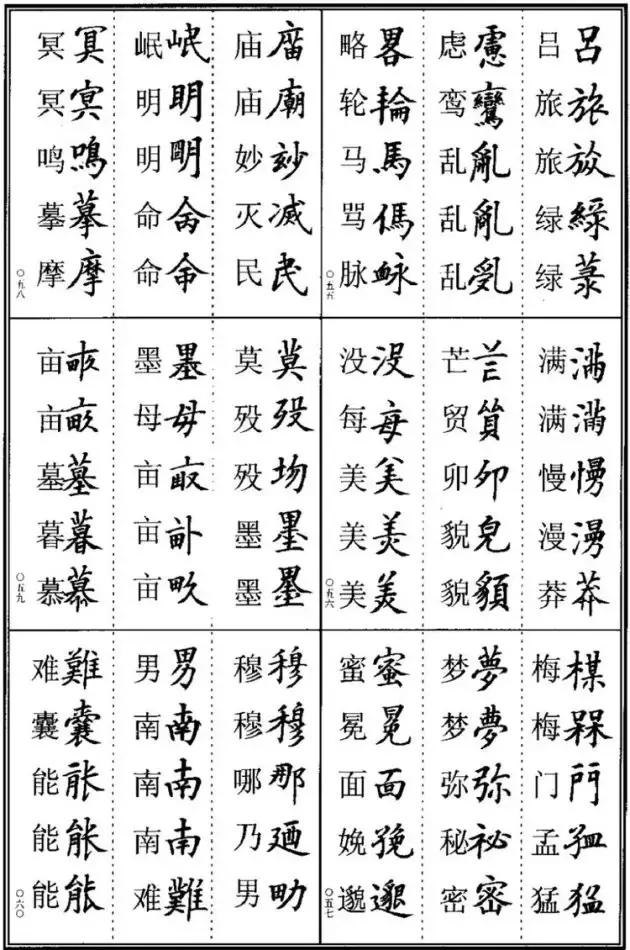 吕呂
旅旅
旅
绿綠
绿菉
虑慮
鸾鸞
乱亂
乱亂
乱
略畧
轮輪
马馬
骂傌
脉
〇五五
满满
满滿
慢慢
漫漫
莽莽
芒芒
贸貿
卯夘
貌皃
貌
没没
每每
美美
美羙
美美
〇五六
梅楳
梅槑
门門
孟
猛猛
梦夢
梦夢
弥弥
秘祕
密密
蜜蜜
冕冕
面面
娩
邈邈
〇五七
庙庿
庙廟
妙玅
灭滅
民民
岷岷
明眀
明朙
命命
命命
冥冥
冥冥
鸣鳴
摹摹
摩摩
〇五八
莫莫
殁殁
殁
墨墨
墨墨
墨墨
母母
亩
亩
亩畂
亩
亩畝
墓墓
暮暮
慕慕
〇五九
穆穆
穆穆
哪那
乃迺
男
男男
南南
南南
南南
难難
难難
囊囊
能能
能能
能能
〇六〇